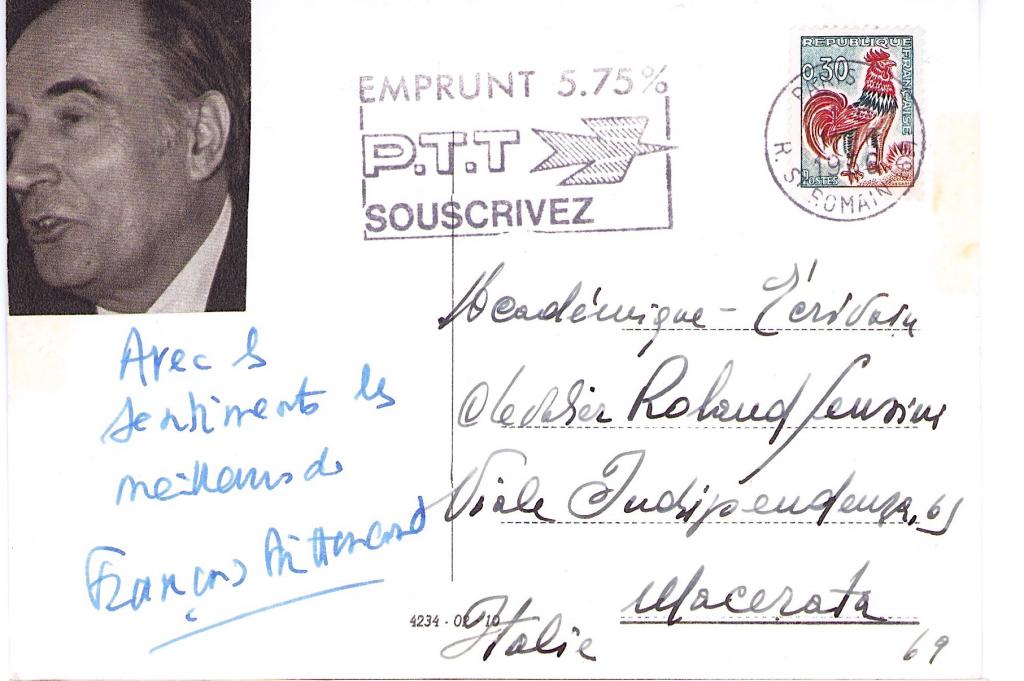 EMPRUNT 5.75%
P.T.T
SOUSCRIVEZ
REPUBLIQUE FRANÇAISE
0,30
POSTES
PARIS
R. St ROMAIN
Avec les
sentiments les
meilleurs de
François Mitterrand
Académique - Écrivain
Roland
Viale Indipendenza, 69
Macerata
Italie
69
4234 - 02 10